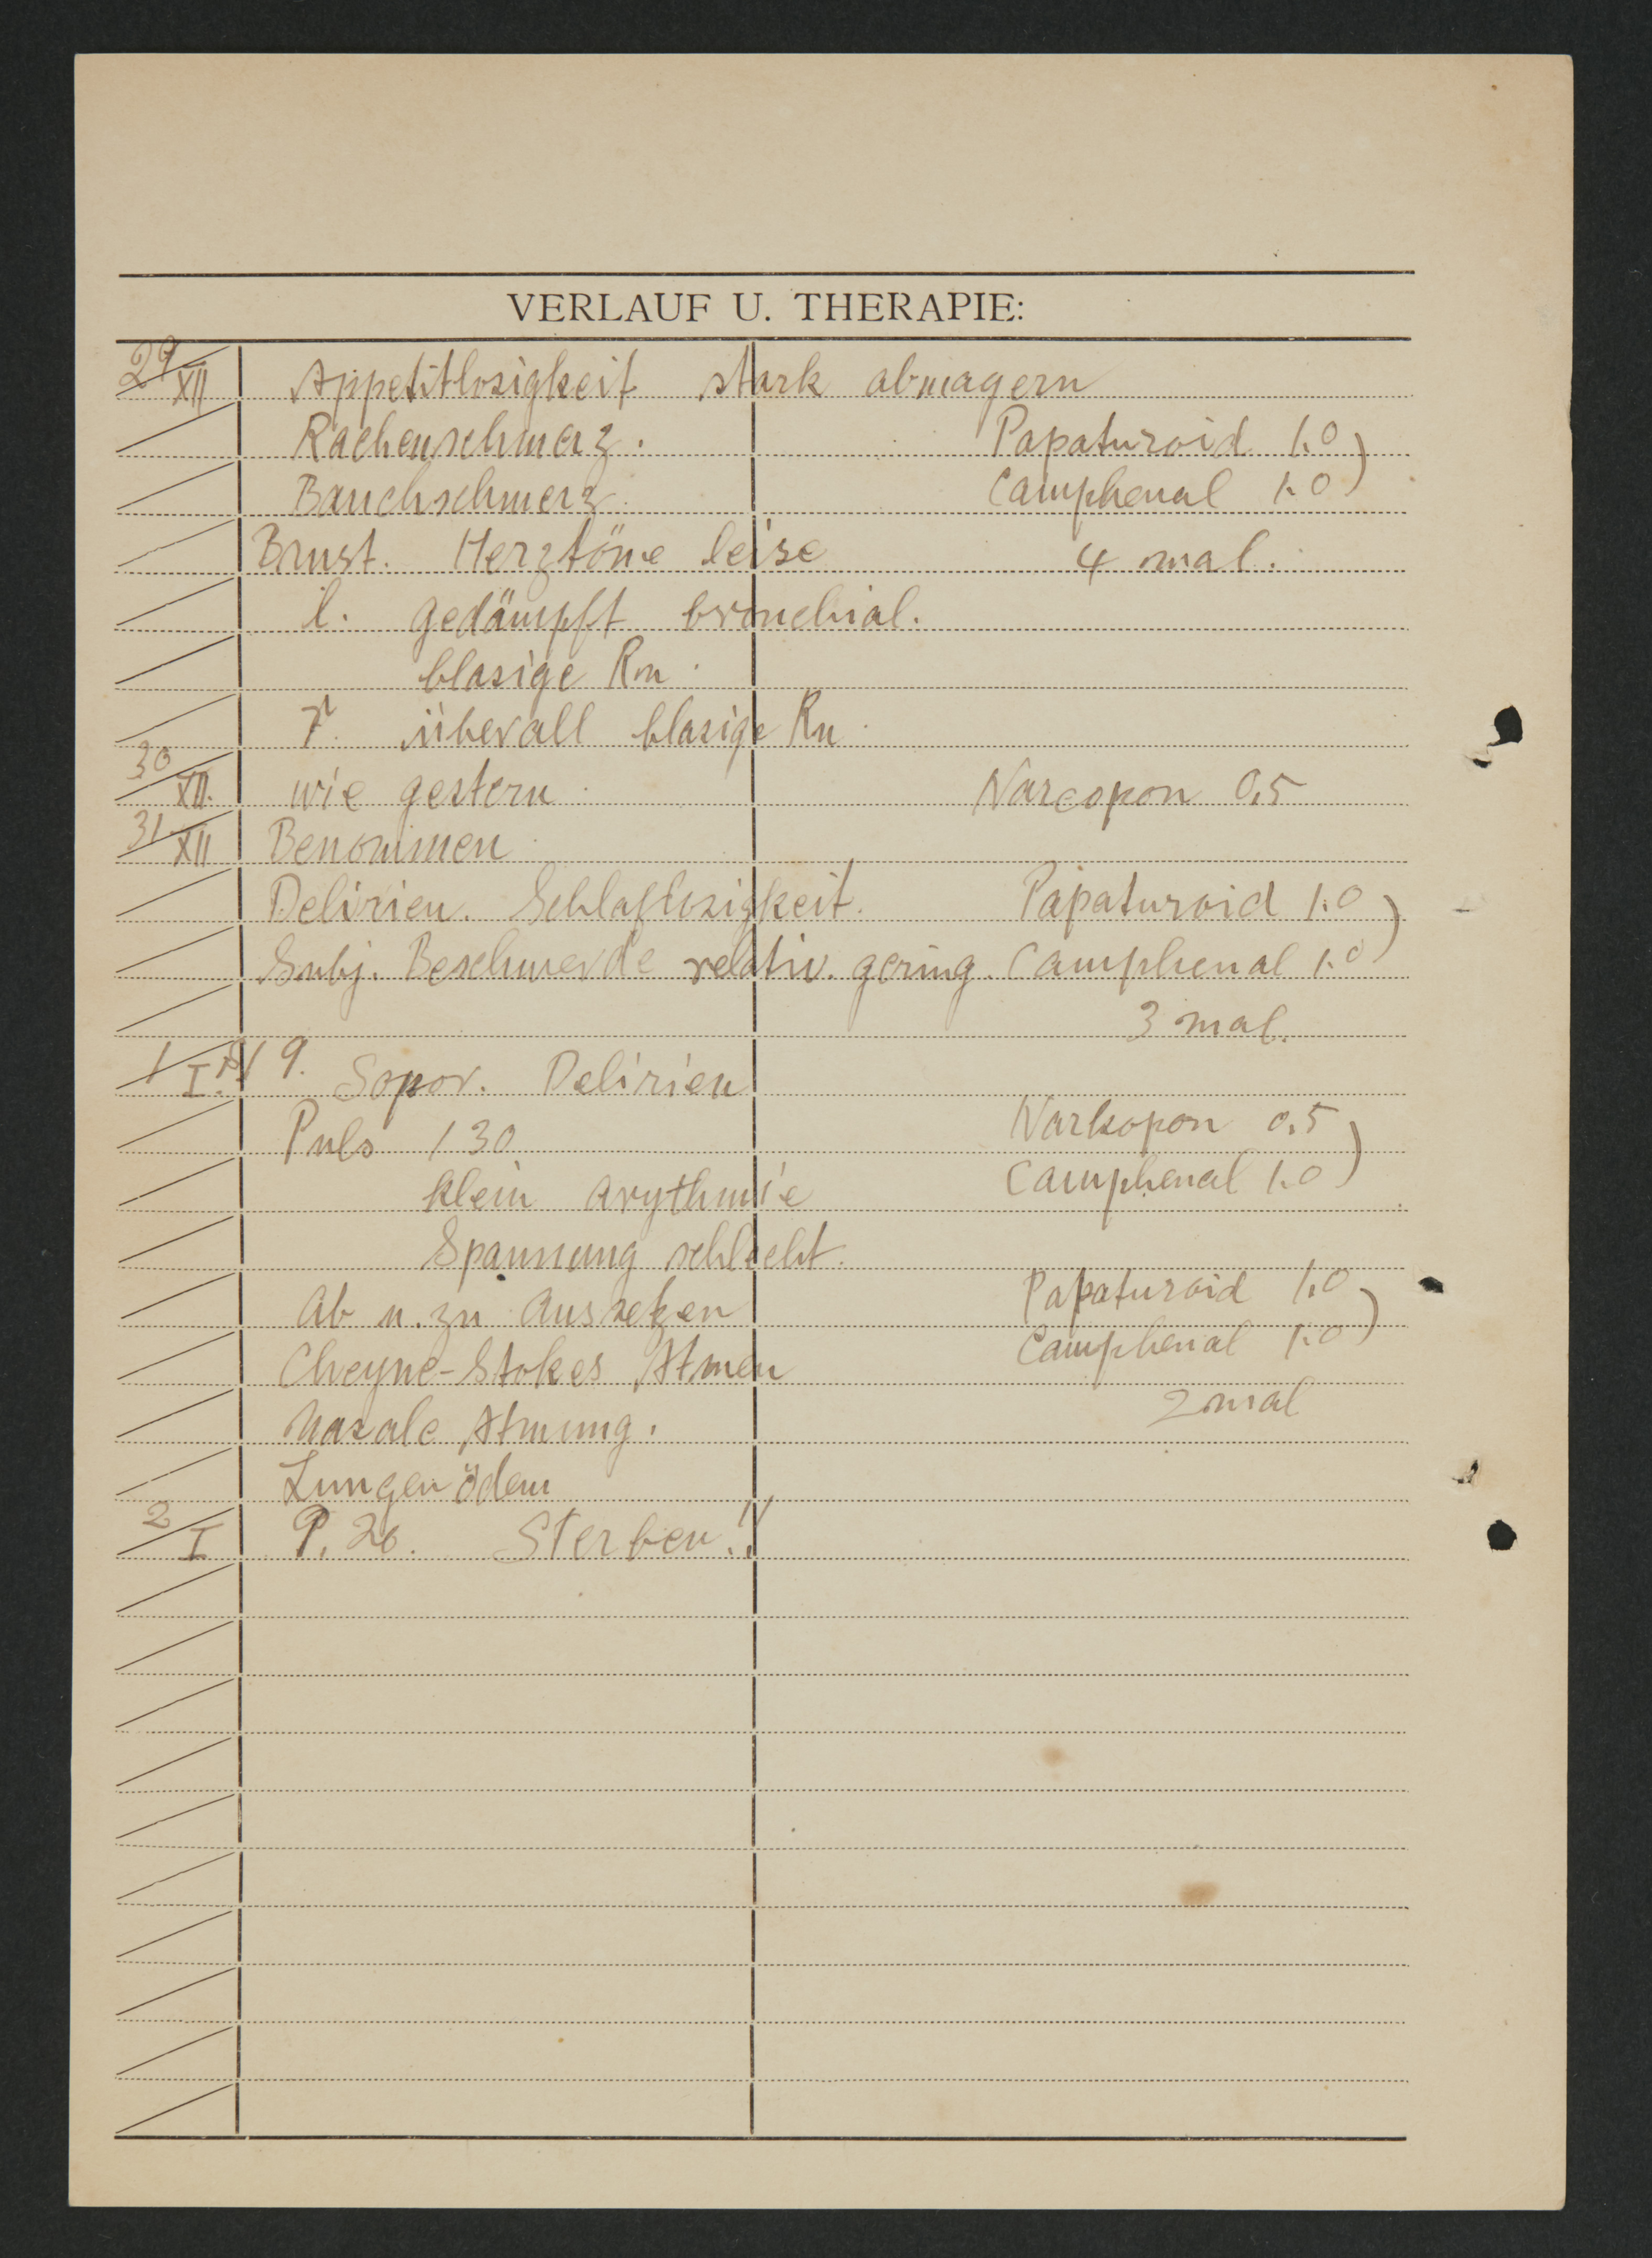 VERLAUF U. THERAPIE:
29/XII Appetitlosigkeit stark abmagern
Rachenschmerz. Papaturoid 1.0)
Bauchschmerz. Camphenal 1.0)
Brust. Herztöne leise 4 mal.
l. gedämpft bronchial.
blasige Rn.
r. überall blasige Rn.
30/XII. wie gestern. Narcopon 0.5
31/XII Benommen
Delirien. Schlaflosigkeit. Papaturoid 1.0)
Subj. Beschwerde relativ. gering. Camphenal 1.0)
3 mal.
1/I. Sopor. Delirien
Puls 130 Narkopon 0.5)
klein arythmie Camphenal 1.0)
Spannung schlecht.
Ab u. zu Aussetzen Papaturoid 1.0)
Cheyne-Stokes Atmen Camphenal 1.0)
Nasale Atmung. 2 mal
Lungenödem
2/I P. 20. Sterben!!